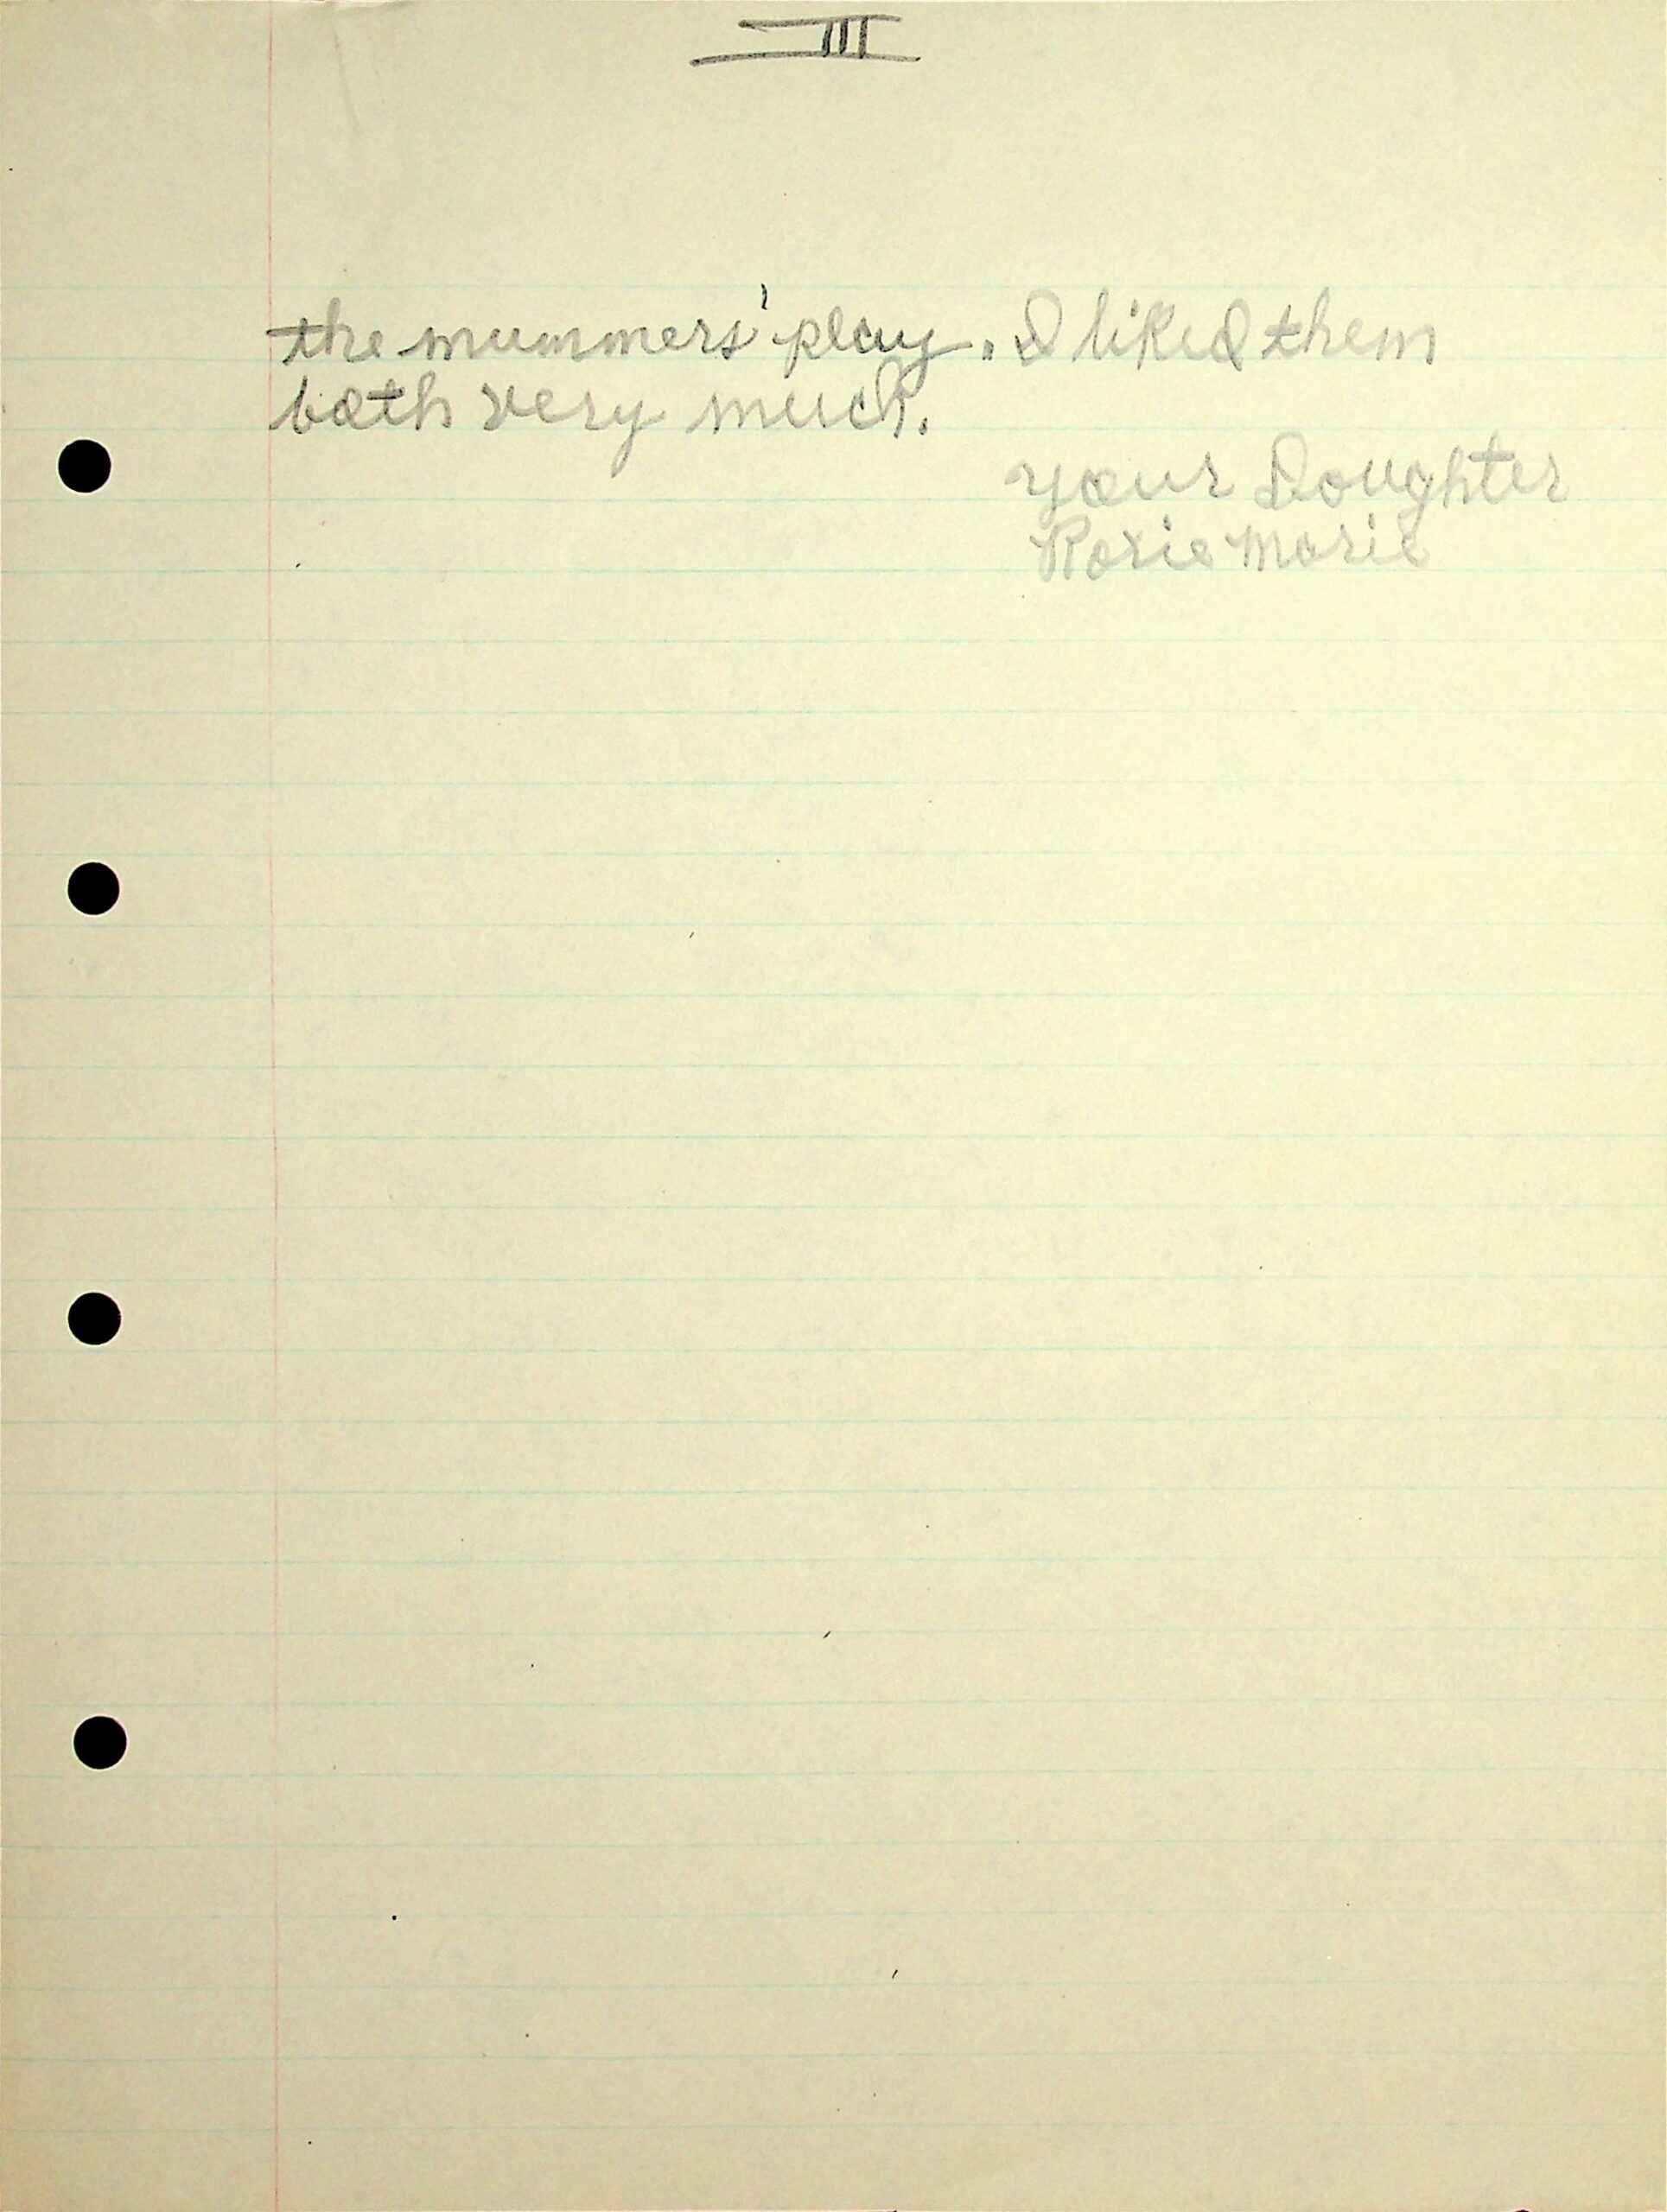 III
the mummers' play. I liked them
both very much.
your Doughter
Roxie Marie